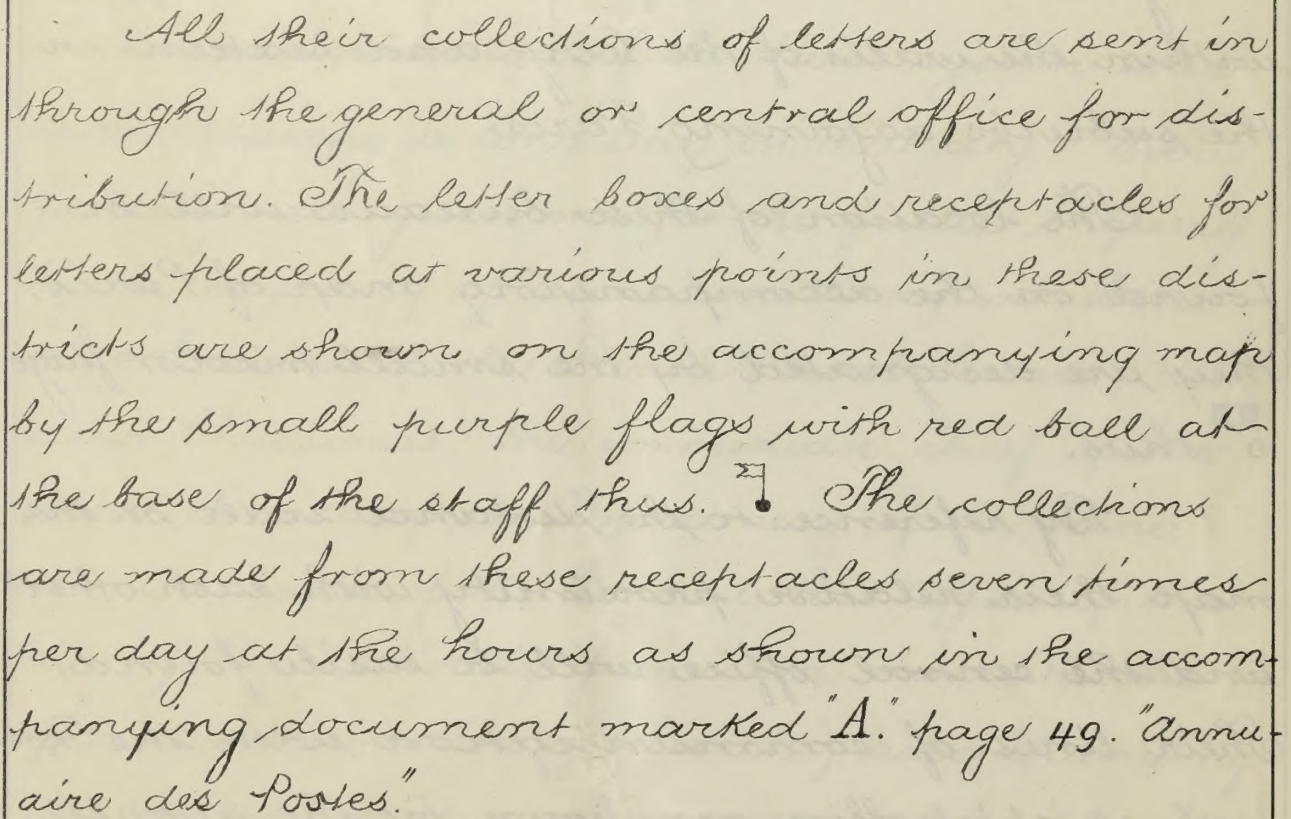 All their collections of letters are sent in
through the general or central office for dis-
tribution. The letter boxes and receptacles for
letters placed at various points in these dis-
tricts are shown on the accompanying map
by the small purple flags with red ball at
the base of the staff thus. The collections
are made from these receptacles seven times
per day at the hours as shown in the accom-
panying document marked "A." page 49. "Annu-
aire des Postes."